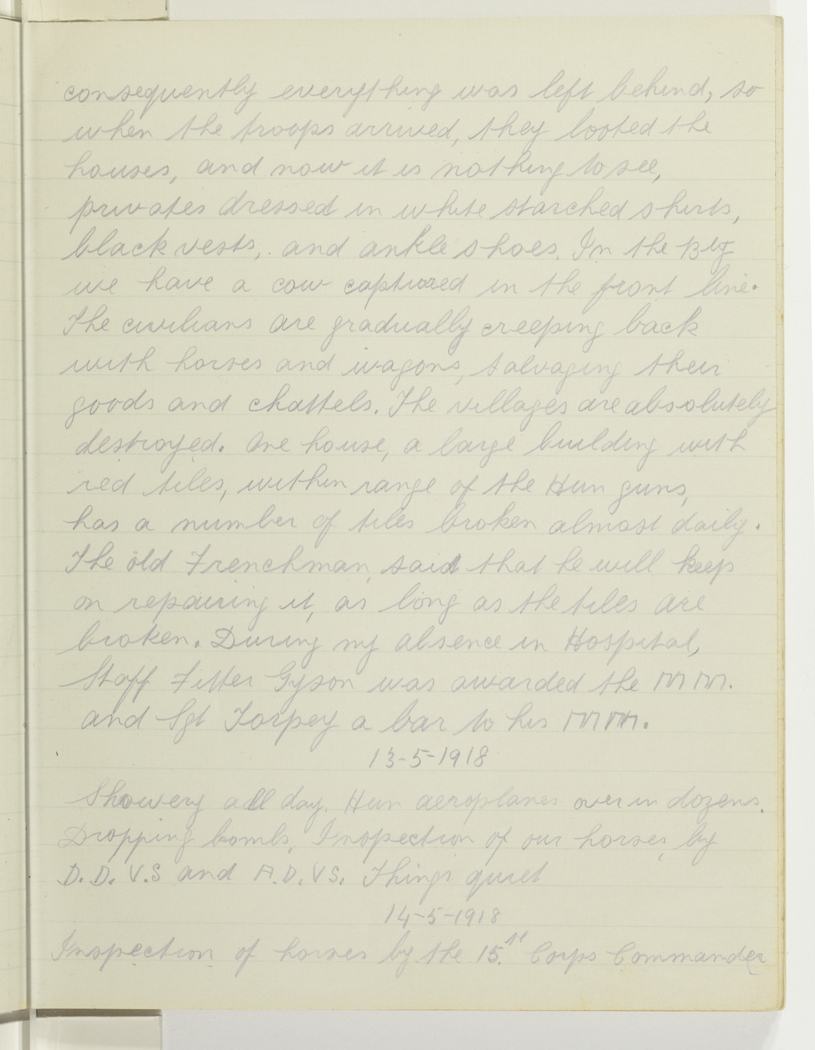 consequently everything was left behind, so
when the troops arrived, they looted the
houses, and now it is nothing to see,
privates dressed in white starched shirts,
black vests, and ankle shoes. In the Bty
we have a cow captured in the front line.
The civilians are gradually creeping back
with horses and wagons, salvaging their
goods and chattels. The villages are absolutely
destroyed. One house, a large building with
red tiles, within range of the Hun guns,
has a number of tiles broken almost daily.
The old Frenchman, said that he will keep
on repairing it, as long as the tiles are
broken. During my absence in Hospital,
Staff Fitter Gyson was awarded the MM.
and Sgt Torpey a bar to his MM.
13-5-1918
Showery all day. Hun aeroplanes over in dozens.
Dropping bombs. Inspection of our horses, by
D.D.V.S and A.D.VS. Things quiet
14-5-1918
Inspection of horses by the 15th Corps Commander